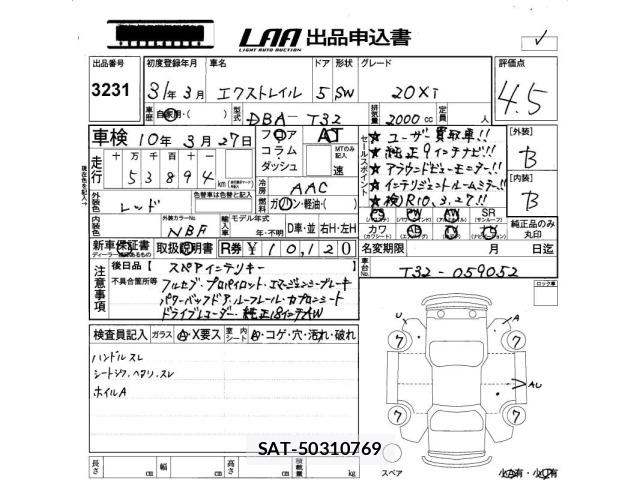 LAA 出品申込書
LIGHT AUTO AUCTION
出品番号 初度登録年月 車名 ドア 形状 グレード 評価点
3231 31年3月 エクストレイル 5 SW 20Xi 4.5
車歴 自家用・( ) 型式 DBA-T32 排気量 2000cc 定員 人
車検 10年3月27日 フロア コラム・ダッシュ AT MTのみ記入 速
セールスポイント
★ユーザー買取車!!
★純正9インチナビ!!
★アラウンドビューモニター!!
★インテリジェントルームミラー!!
★検)R10.3.27!!
[外装] B
[内装] B
走行 十万千百十 53894 km
現在色を記入→
冷房 AAC
外装色 レッド 色替車は色替と記入 燃料 ガソリン・軽油・( )
PS PW AW SR
(パワステ) (パワーウィンド) (アルミ) (サンルーフ)
カワ AB TV ナビ
純正品のみ丸印
外装カラーNo. NBF 輸入車 モデル年式 年・不明 D車・並 右H・左H
新車保証書 取扱説明書 R券 ¥10,120 名変期限 月 日迄
ディーラー捺印のあるもの
車台No. T32-059052
注意事項 後日品【 スペアインテリキー
不具合箇所等 フルセグ プロパイロット・エマージェンシーブレーキ
パワーバックドア・ルーフレール・カプロンシート
ドライブレコーダー・純正18インチAW
ロック車
検査員記入 ガラス A・X要ス 室内シート B・コゲ・穴・汚れ・破れ
ハンドルスレ
シートシワ・ヘタリ・スレ
ホイルA
U A
7 7
AU
7 7
SAT-50310769
長さ cm 幅 cm 高さ cm 積載量 kg スペア 小A有・小U有